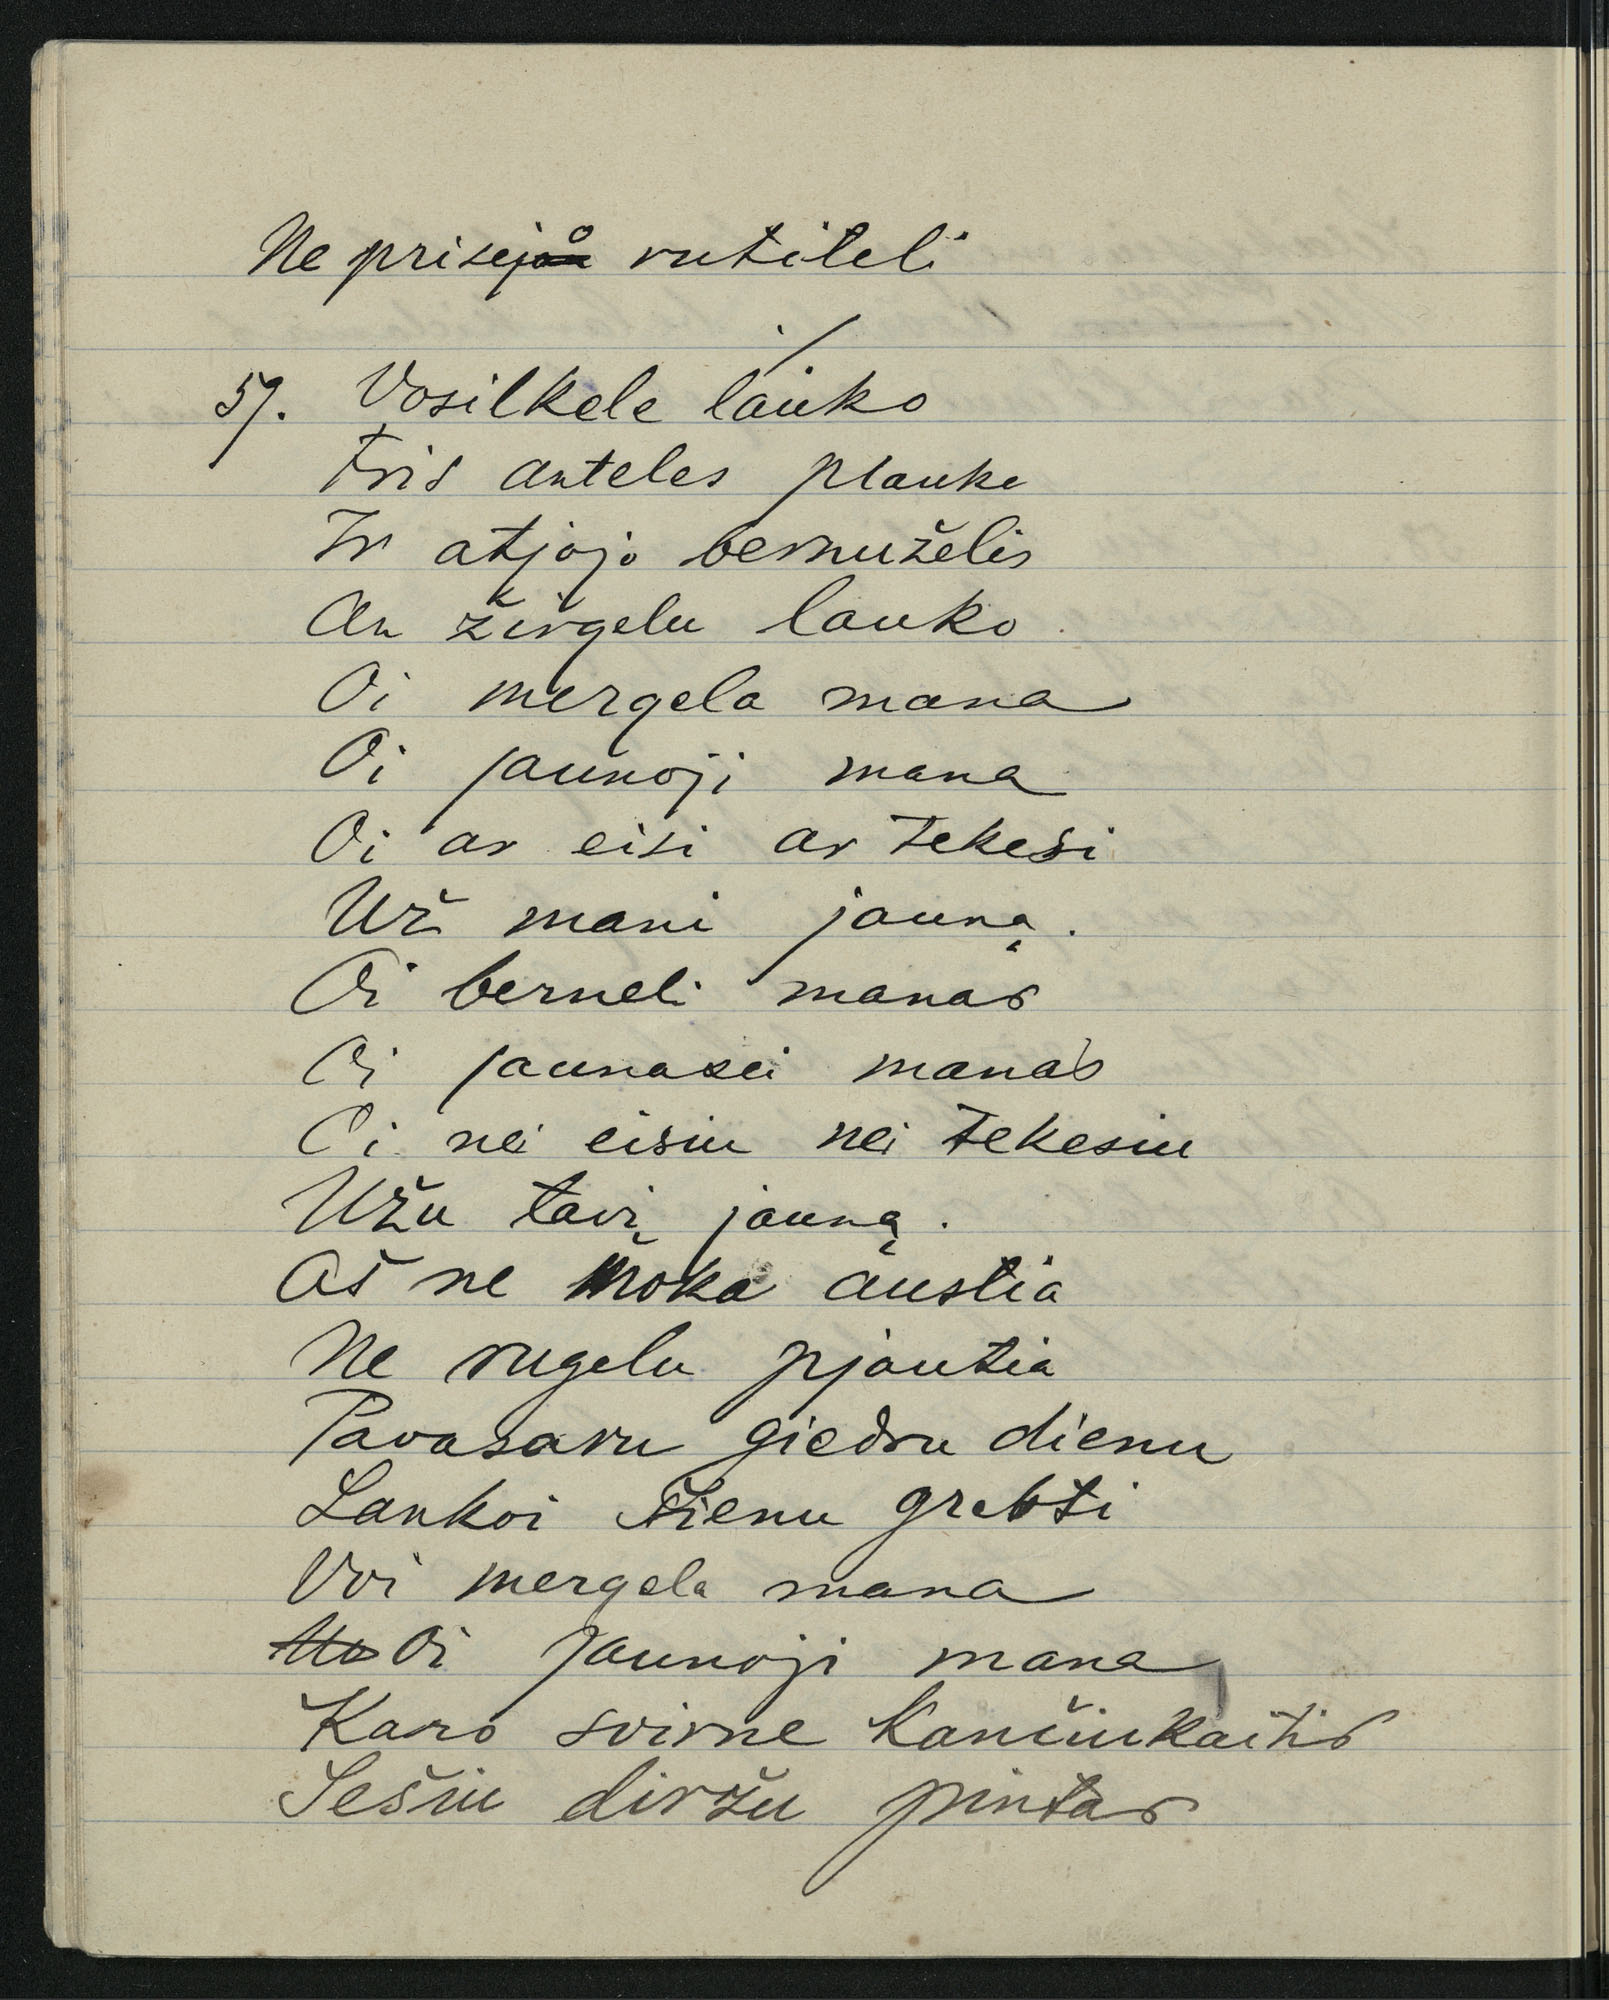 Ne prisejo rutiteli
57. Vosilkele lauko
Tris anteles plauke
Ir atjojo bernuželis
An žirgelu lauko
Oi mergela mana
Oi jaunoji mana
Oi ar eisi ar tekesi
Už mani jauną.
Oi berneli manas
Oi jaunasei manas
Oi nei eisiu nei tekesiu
Užu tavį jauną.
Aš ne moka austia
Ne rugelu pjautia
Pavasaru giedru dienu
Lankoi šienu grebti
Voi mergela mana
Oi jaunoji mana
Karo svirne kančiukaitis
Sešiu diržu pintas